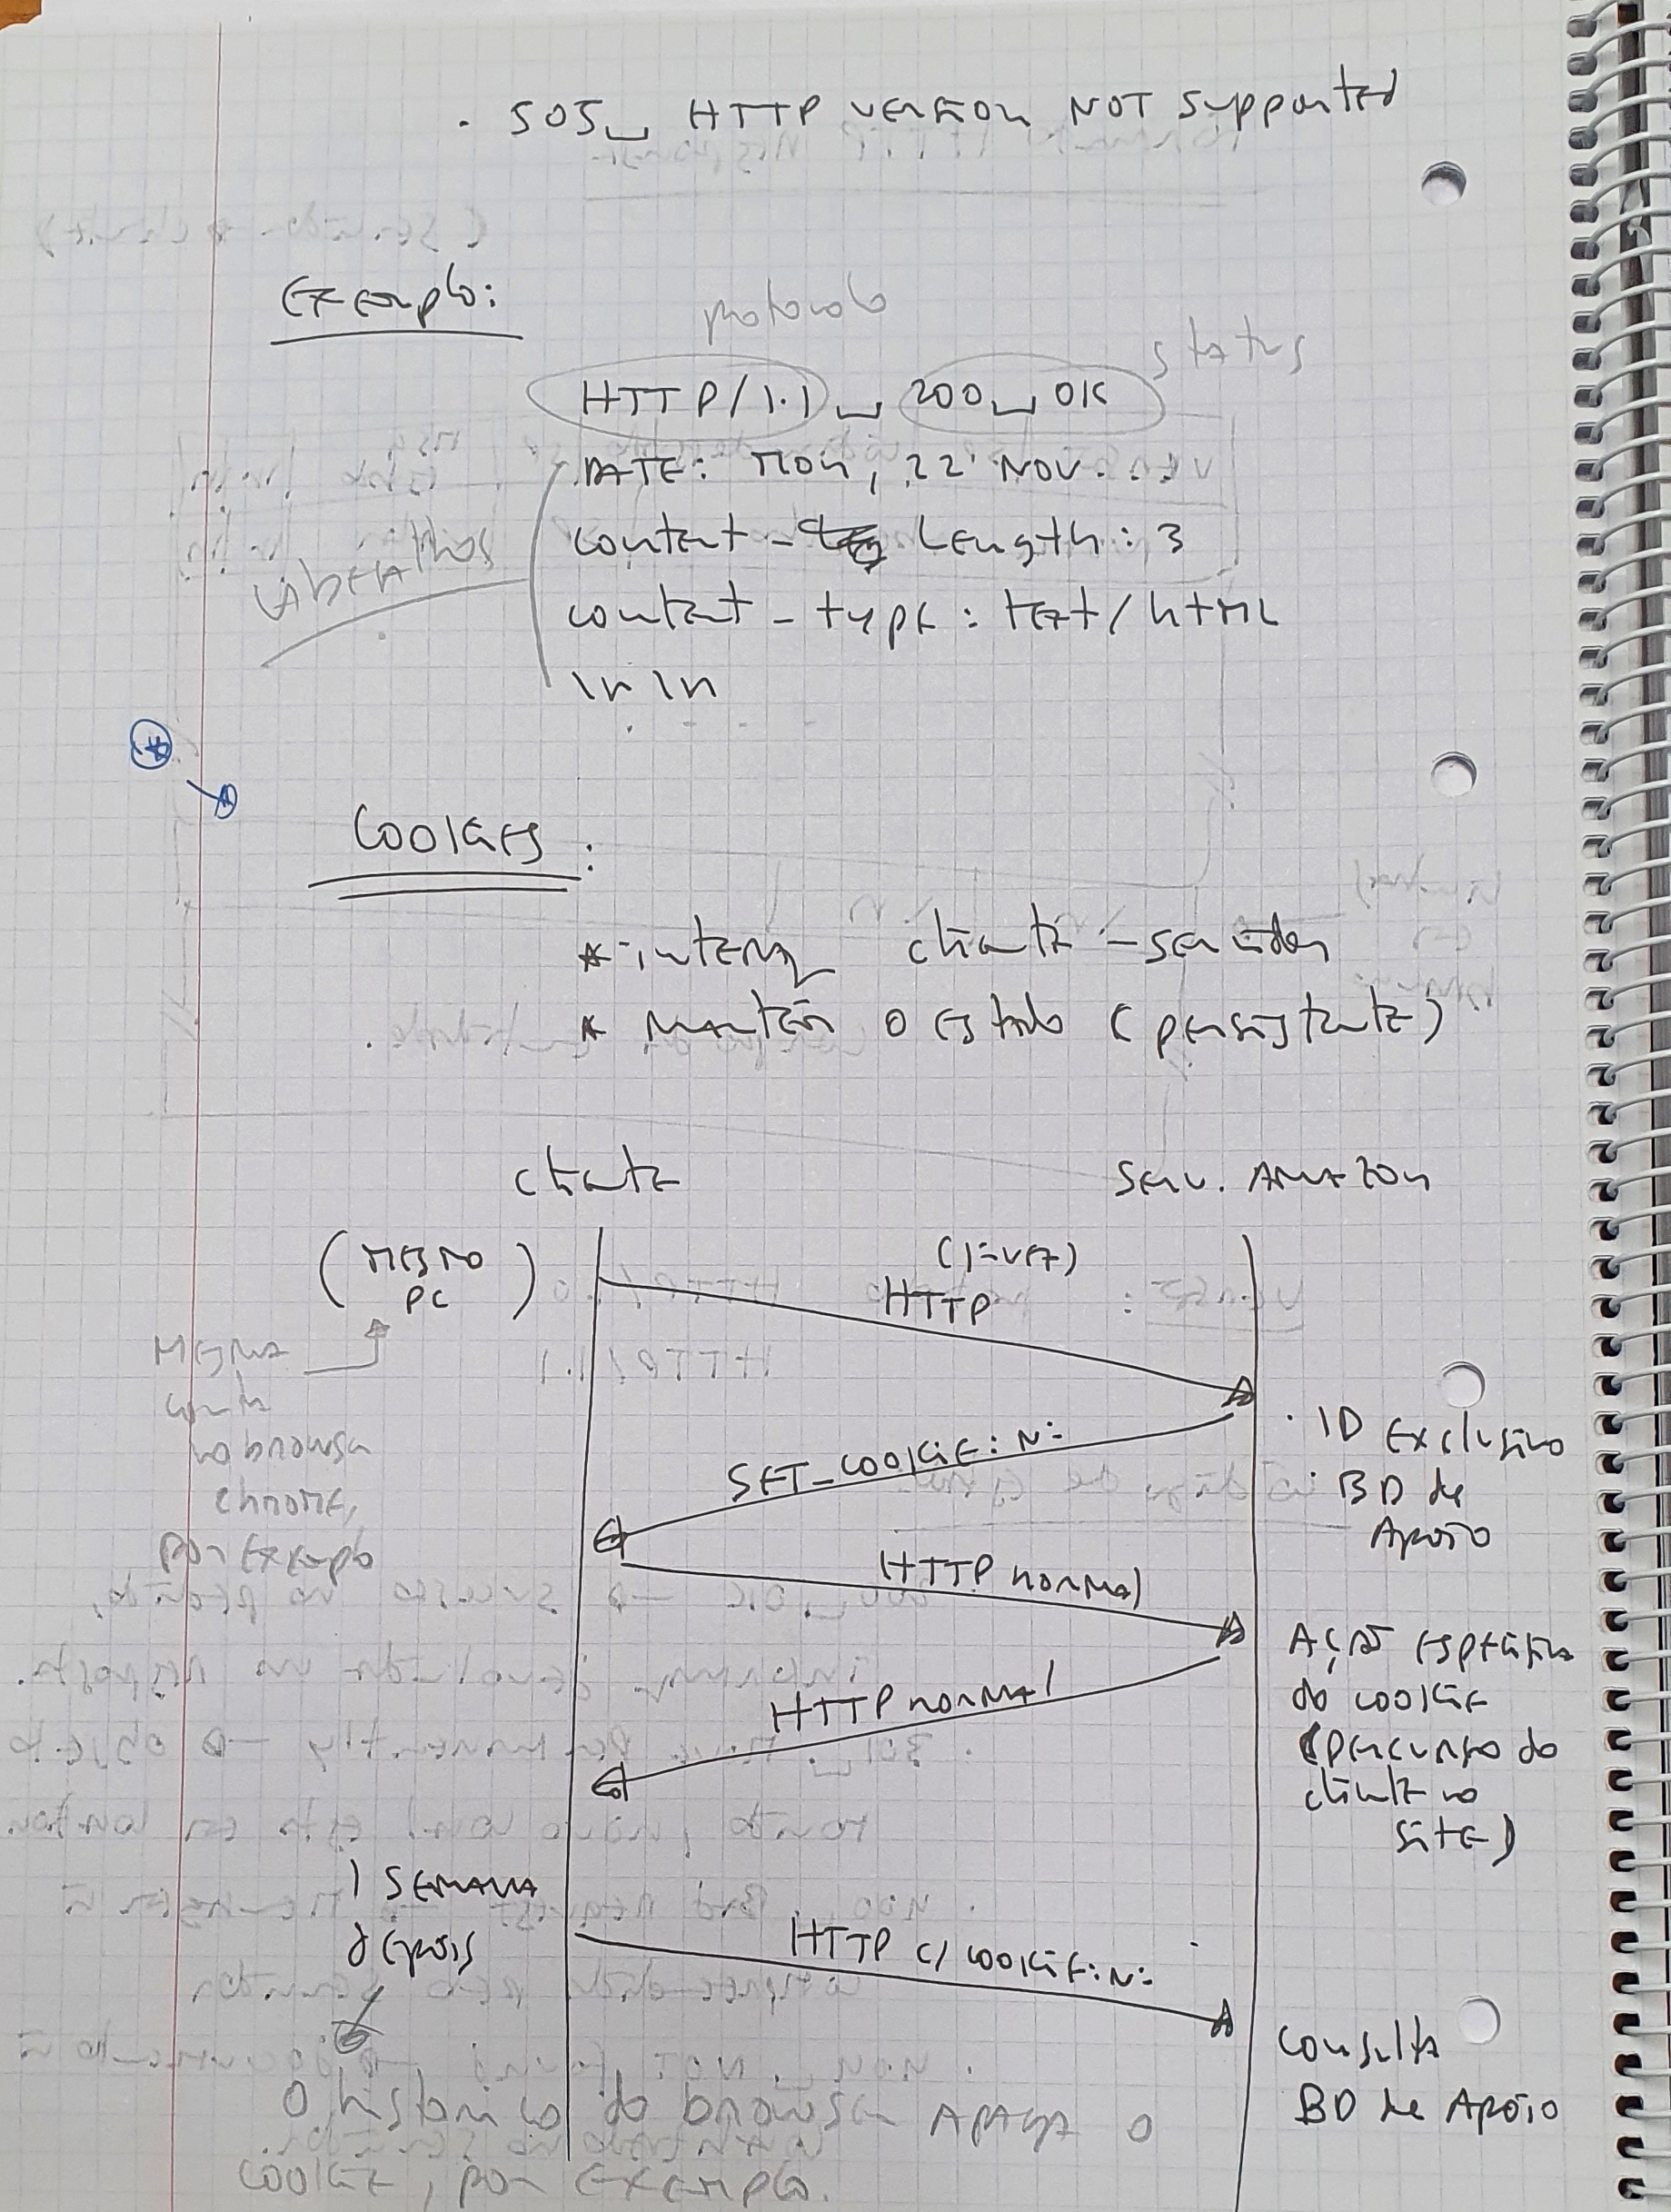 . 505␣ HTTP version NOT supported
Exemplo:
protocolo
status
HTTP/1.1 ␣ 200 ␣ OK
DATE: Mon, 22 NOV...
content - Length: 3
cabeçalhos
content - type: text/html
\r \n
Cookies:
* interaç cliente - servidor
* mantém o estado (persistente)
cliente
Serv. Amazon
(mesmo PC)
(1ª vez)
HTTP
mesma
conta
no browser
chrome,
por exemplo
SET_COOKIE: Nº
. ID exclusivo
. BD de
Apoio
HTTP normal
Ação específica
do cookie
(percurso do
cliente no
site)
HTTP normal
1 semana
depois
HTTP c/ cookie: Nº
consulta
BD de Apoio
O histórico do browser apaga o
cookie, por exemplo.